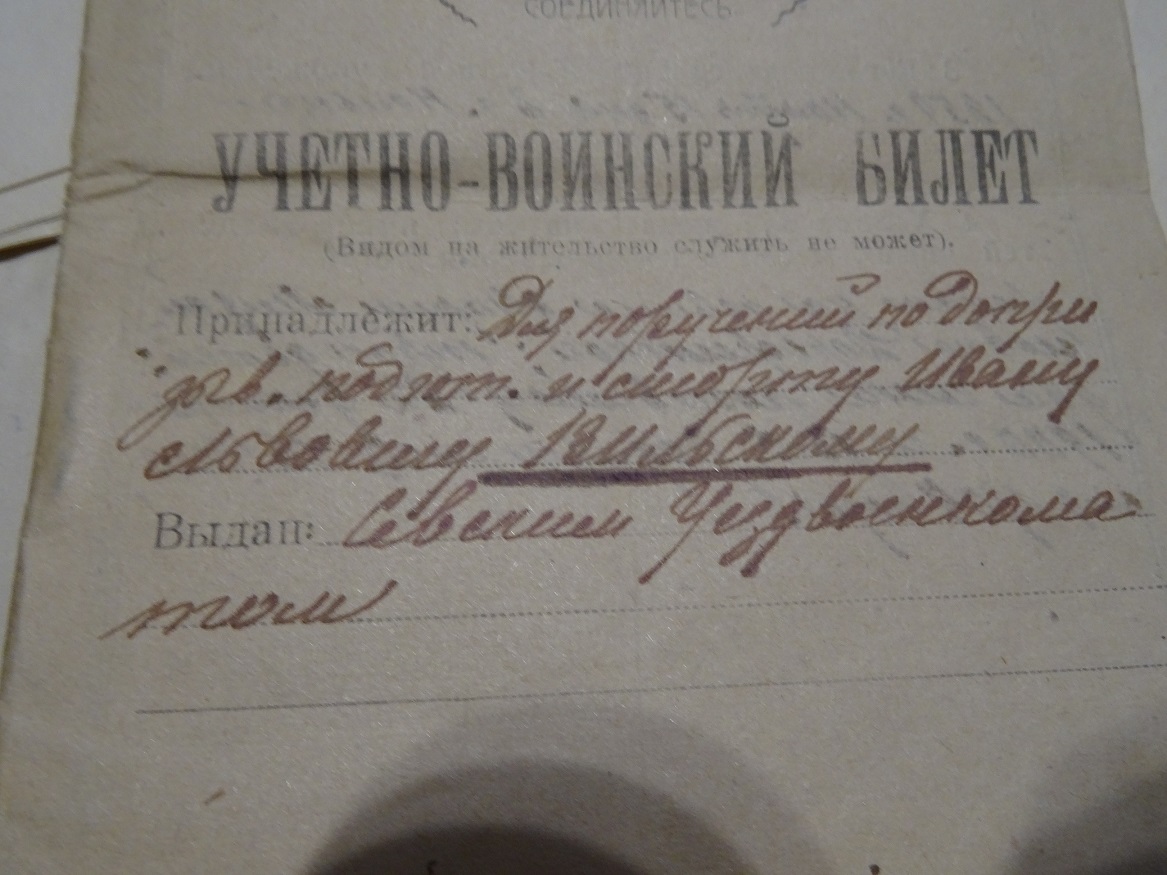 СОЕДИНЯЙТЕСЬ
УЧЕТНО-ВОИНСКИЙ БИЛЕТ
(Видом на жительство служить не может).
Принадлежит: Для поручений по допри
зыв. подгот. и спорту Ивану
Львовичу Вильскому
Выдан: Севским Уездвоенкома
том